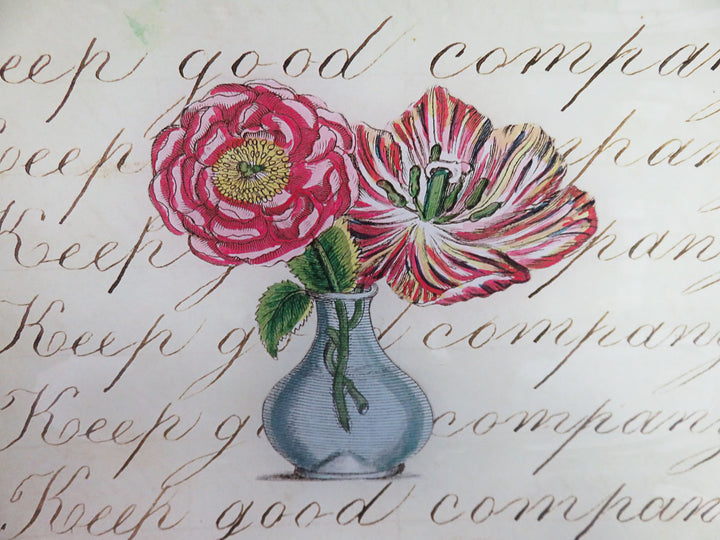 eep good company
Keep company
Keep company
Keep g company
Keep g company
Keep good company